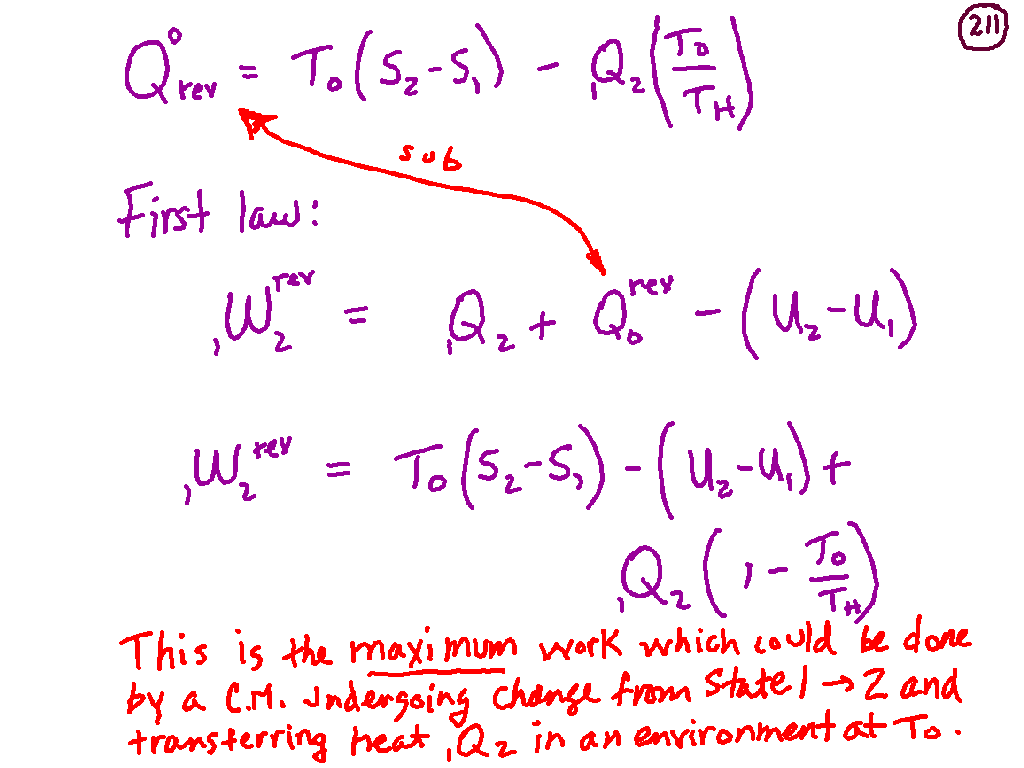 211
Q°rev = T₀(S₂-S₁) - ₁Q₂(T₀/T_H)
sub
First law:
₁W₂^rev = ₁Q₂ + Q₀^rev - (U₂-U₁)
₁W₂^rev = T₀(S₂-S₁) - (U₂-U₁) +
₁Q₂(1 - T₀/T_H)
This is the maximum work which could be done
by a C.M. undergoing change from state 1 → 2 and
transferring heat ₁Q₂ in an environment at T₀.